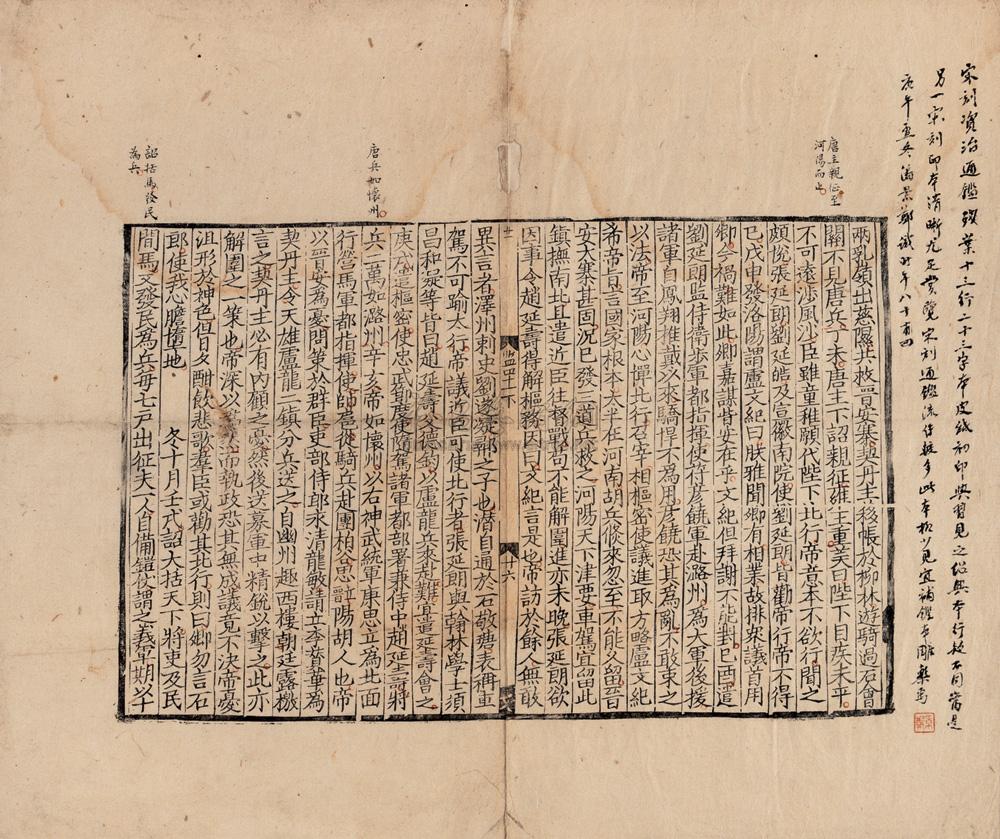 宋刻資治通鑑殘葉十三行二十三字本皮紙初印與習見之紹興本行款不同當是
另一宋刻印本清晰尤足賞覽宋刻通鑑流傳較多此本極少見宜
庚午 潘景鄭識時年八十有四
唐主親征至
河陽而止
唐兵如懷州
詔括馬發民
為兵
兩乳嶺出慈隰共救晉安寨契丹主移帳於柳林遊騎過石會
關不見唐兵丁未唐主下詔親征雍王重美曰陛下目疾未平
不可遠涉風沙臣雖童稚願代陛下北行帝意本不欲行聞之
頗悅張延朗劉延皓及宣徽南院使劉延朗皆勸帝行帝不得
已戊申發洛陽謂盧文紀曰朕雅聞卿有相業故排衆議首用
卿今禍難如此卿嘉謀皆安在乎文紀但拜謝不能對己酉遣
劉延朗監侍衛步軍都指揮使符彥饒軍赴潞州為大軍後援
諸軍自鳳翔推戴以來驕悍不為用彥饒恐其為亂不敢束之
以法帝至河陽心憚北行召宰相樞密使議進取方略盧文紀
希帝旨言國家根本太半在河南胡兵倏來忽至不能久留晉
安大寨甚固況已發三道兵救之河陽天下津要車駕宜留此
鎮撫南北且遣近臣往督戰苟不能解圍進亦未晚張延朗欲
因事令趙延壽得解樞務因曰文紀言是也帝訪於餘人無敢
監四十下
十六
異言者澤州刺史劉遂凝鄩之子也潛自通於石敬瑭表稱車
駕不可踰太行帝議近臣可使北行者張延朗與翰林學士須
昌和凝等皆曰趙延壽父德鈞以盧龍兵來赴難宜遣延壽會之
庚戌遣樞密使忠武節度使隨駕諸軍都部署兼侍中趙延壽將
兵二萬如潞州辛亥帝如懷州以右神武統軍康思立為北面
行營馬軍都指揮使帥扈從騎兵赴團柏谷思立晉陽胡人也帝
以晉安為憂問策於群臣吏部侍郎永清龍敏請立李贊華為
契丹主令天雄盧龍二鎮分兵送之自幽州趣西樓朝廷露檄
言之契丹主必有內顧之憂然後選募軍中精銳以擊之此亦
解圍之一策也帝深以為然而執政恐其無成議竟不決帝憂
沮形於神色但日夕酣飲悲歌羣臣或勸其北行則曰卿勿言石
郎使我心膽墮地 冬十月壬戌詔大括天下將吏及民
間馬又發民為兵每七戶出征夫一人自備鎧仗謂之義軍期以十